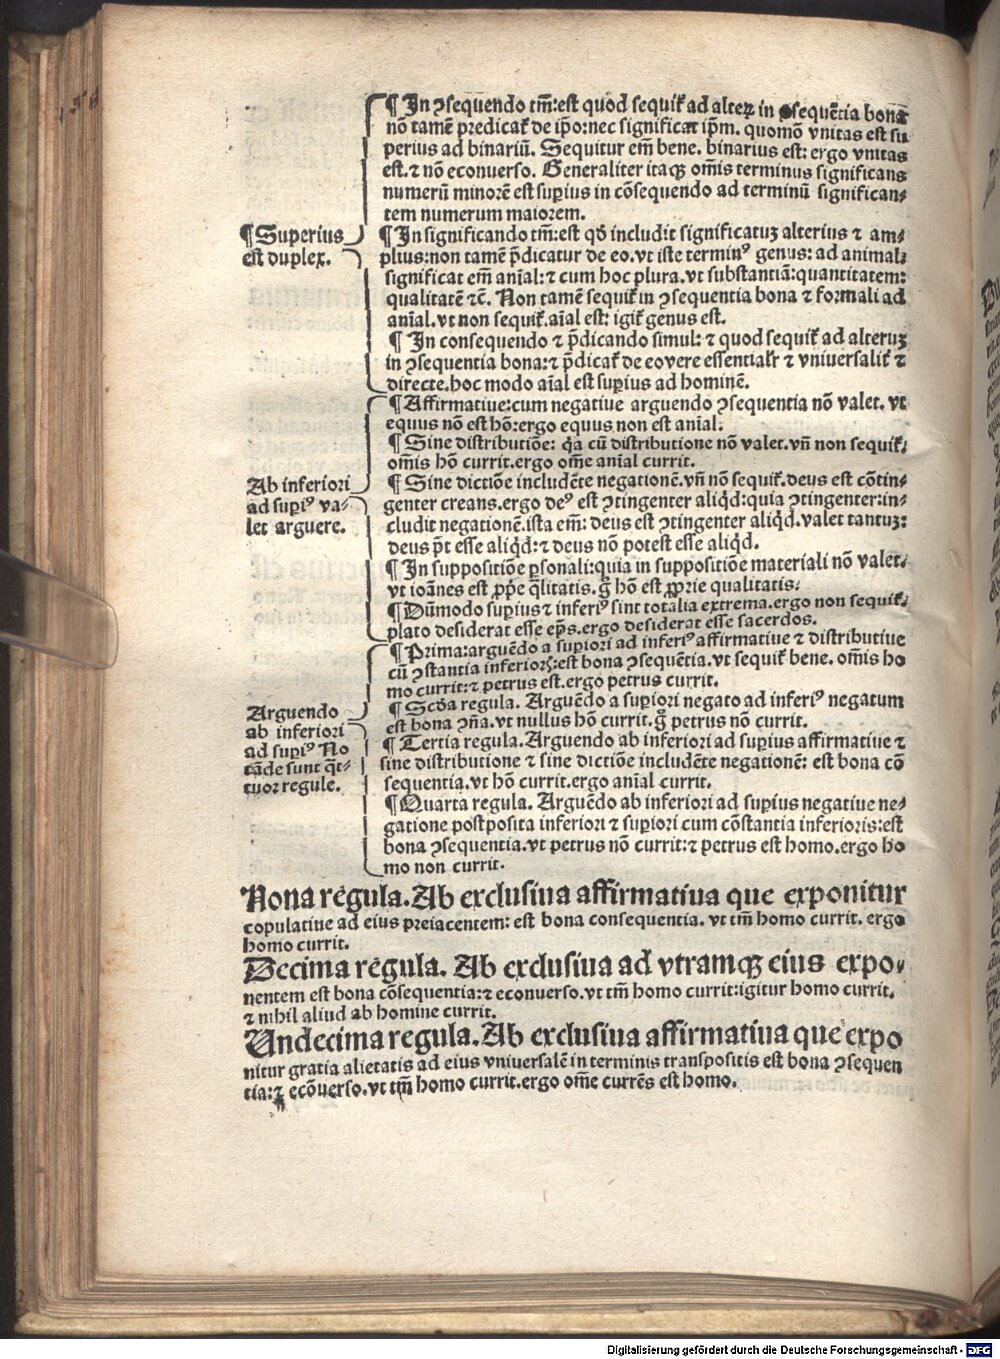 ¶ In ↄsequendo tm̄:est quod sequit̃ ad alteꝝ in ↄsequētia bona
nō tamē predicat̃ de ip̄o:nec significat ip̄m. quomō vnitas est su
perius ad binariū. Sequitur em̄ bene. binarius est: ergo vnitas
est.⁊ nō econuerso. Generaliter itaqꝫ om̄is terminus significans
numerū minorē est suꝑius in cōsequendo ad terminū significan⸗
tem numerum maiorem.
¶ Superius
est duplex.
¶ In significando tm̄:est qd̄ includit significatuꝫ alterius ⁊ am⸗
plius:non tamē p̄dicatur de eo.vt iste terminꝰ genus: ad animal:
significat em̄ aīal:⁊ cum hoc plura.vt substantiā:quantitatem:
qualitatē ⁊c̄. Non tamē sequit̃ in ↄsequentia bona ⁊ formali ad
aīal.vt non sequit̃.aīal est: igit̃ genus est.
¶ In consequendo ⁊ p̄dicando simul: ⁊ quod sequit̃ ad alteruꝫ
in ↄsequentia bona:⁊ p̄dicat̃ de eo vere essentialr̃ ⁊ vniuersalit̃ ⁊
directe.hoc modo aīal est suꝑius ad hominē.
Ab inferiori
ad suꝑiꝰ va⸗
let arguere.
¶ Affirmatiue:cum negatiue arguendo ↄsequentia nō valet. vt
equus nō est hō:ergo equus non est anīal.
¶ Sine distributiōe: q̄a cū distributione nō valet.vn̄ non sequit̃.
om̄is hō currit.ergo om̄e anīal currit.
¶ Sine dictiōe includēte negationē.vn̄ nō sequit̃.deus est cōtin⸗
genter creans.ergo deꝰ est ↄtingenter aliqd̄:quia ↄtingenter:in⸗
cludit negationē.ista em̄: deus est ↄtingenter aliqd̄.valet tantuꝫ:
deus p̄t esse aliqd̄:⁊ deus nō potest esse aliqd̄.
¶ In suppositiōe ꝑsonali:quia in suppositiōe materiali nō valet.
vt ioānes est ꝓp̄e q̄litatis.g̊ hō est ꝓprie qualitatis.
¶ Dūmodo suꝑius ⁊ inferiꝰ sint totalia extrema.ergo non sequit̃.
plato desiderat esse ep̄s.ergo desiderat esse sacerdos.
Arguendo
ab inferiori
ad suꝑiꝰ No
tāde sunt q̄t⸗
tuor regule.
¶ Prima:arguēdo a suꝑiori ad inferiꝰ affirmatiue ⁊ distributiue
cū ↄstantia inferioꝝ:est bona ↄsequētia.vt sequit̃ bene. om̄is ho
mo currit:⁊ petrus est.ergo petrus currit.
¶ Scd̄a regula. Arguēdo a suꝑiori negato ad inferiꝰ negatum
est bona ↄn̄a.vt nullus hō currit.g̊ petrus nō currit.
¶ Tertia regula.Arguendo ab inferiori ad suꝑius affirmatiue ⁊
sine distributione ⁊ sine dictiōe includēte negationē: est bona cō
sequentia.vt hō currit.ergo anīal currit.
¶ Quarta regula. Arguēdo ab inferiori ad suꝑius negatiue ne⸗
gatione postposita inferiori ⁊ suꝑiori cum cōstantia inferioris:est
bona ↄsequentia.vt petrus nō currit:⁊ petrus est homo.ergo ho
mo non currit.
Nona regula. Ab exclusiua affirmatiua que exponitur
copulatiue ad eius preiacentem: est bona consequentia. vt tm̄ homo currit. ergo
homo currit.
Decima regula. Ab exclusiua ad vtramqꝫ eius expo⸗
nentem est bona cōsequentia:⁊ econuerso.vt tm̄ homo currit:igitur homo currit.
⁊ nihil aliud ab homine currit.
Undecima regula. Ab exclusiua affirmatiua que expo
nitur gratia alietatis ad eius vniuersalē in terminis transpositis est bona ↄsequen
tia:⁊ ecōuerso.vt tm̄ homo currit.ergo om̄e currēs est homo.
Digitalisierung gefördert durch die Deutsche Forschungsgemeinschaft - DFG